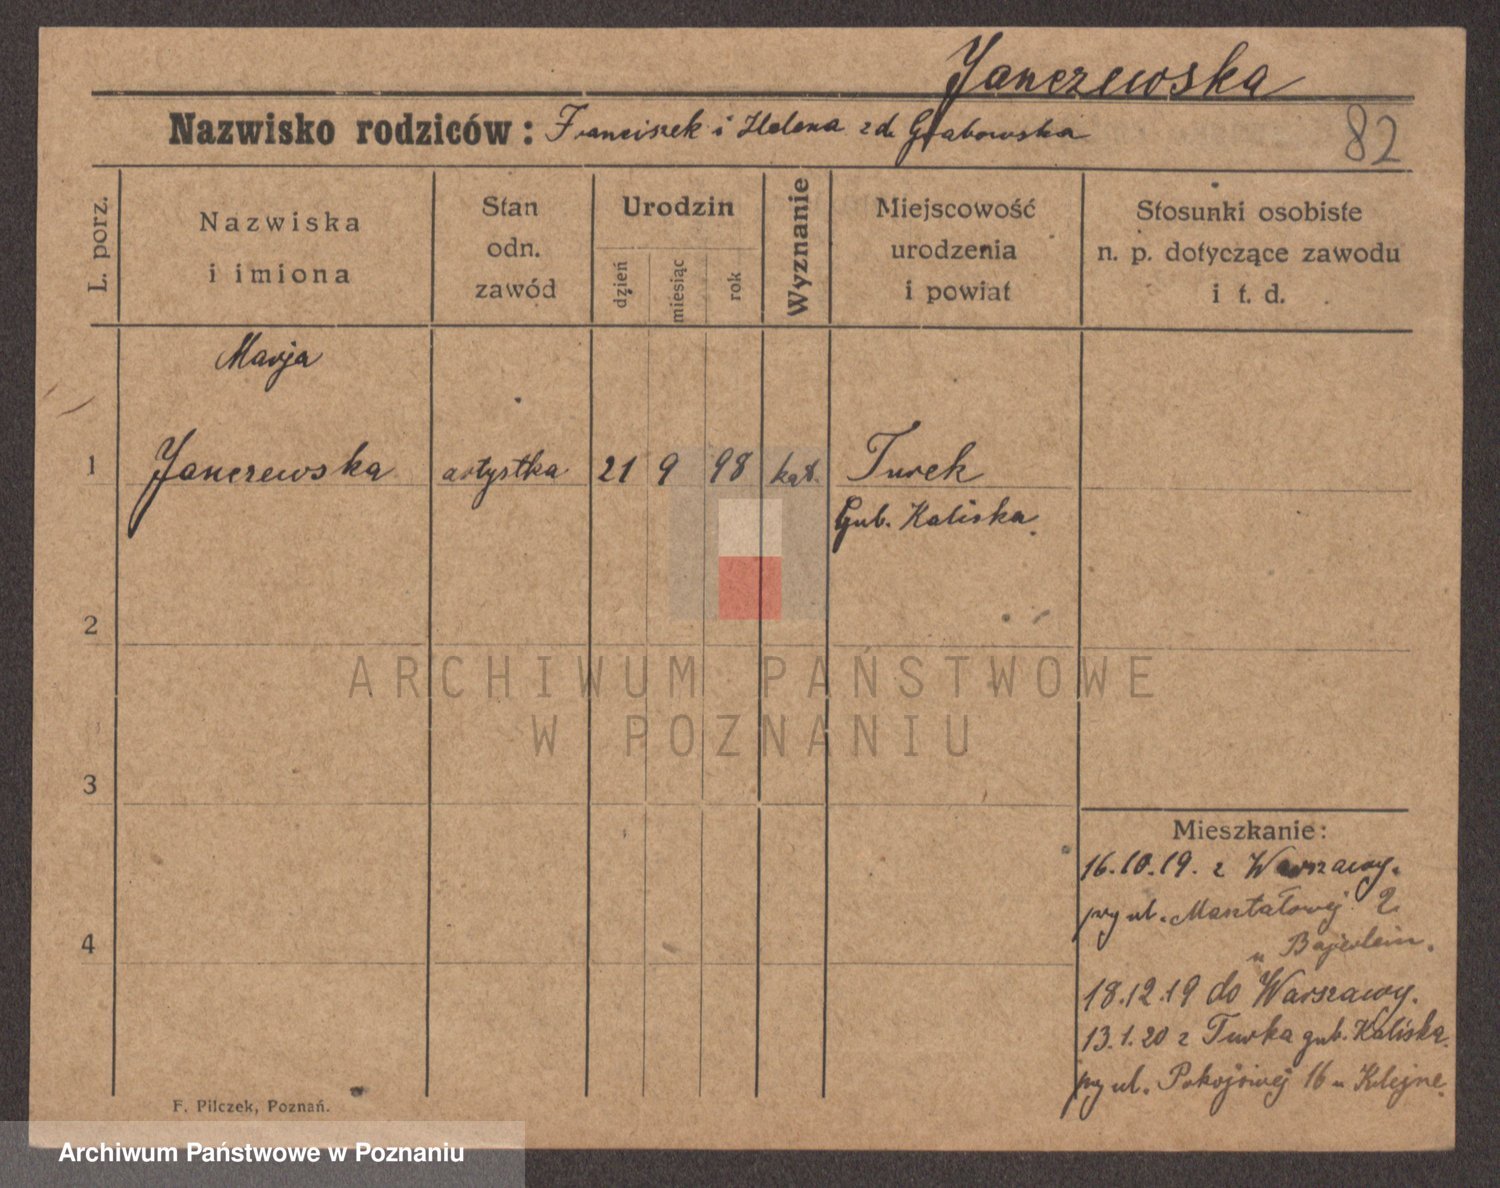 Janczewska
Nazwisko rodziców: Franciszek i Helena zd. Grabowska
82
L. porz.
Nazwiska
i imiona
Stan
odn.
zawód
Urodzin
dzień
miesiąc
rok
Wyznanie
Miejscowość
urodzenia
i powiat
Stosunki osobiste
n. p. dotyczące zawodu
i t. d.
Marja
1 Janczewska artystka 21 9 98 kat. Turek
Gub. Kaliska.
2
ARCHIWUM PAŃSTWOWE
W POZNANIU
3
Mieszkanie:
16.10.19. z Warszawy.
przy ul. Masztalowej 2
u
4
18.12.19 do Warszawy.
13.1.20 z Turka gub. Kaliska.
przy ul. Pokojowej 16 u Klejne.
F. Pilczek, Poznań.
Archiwum Państwowe w Poznaniu